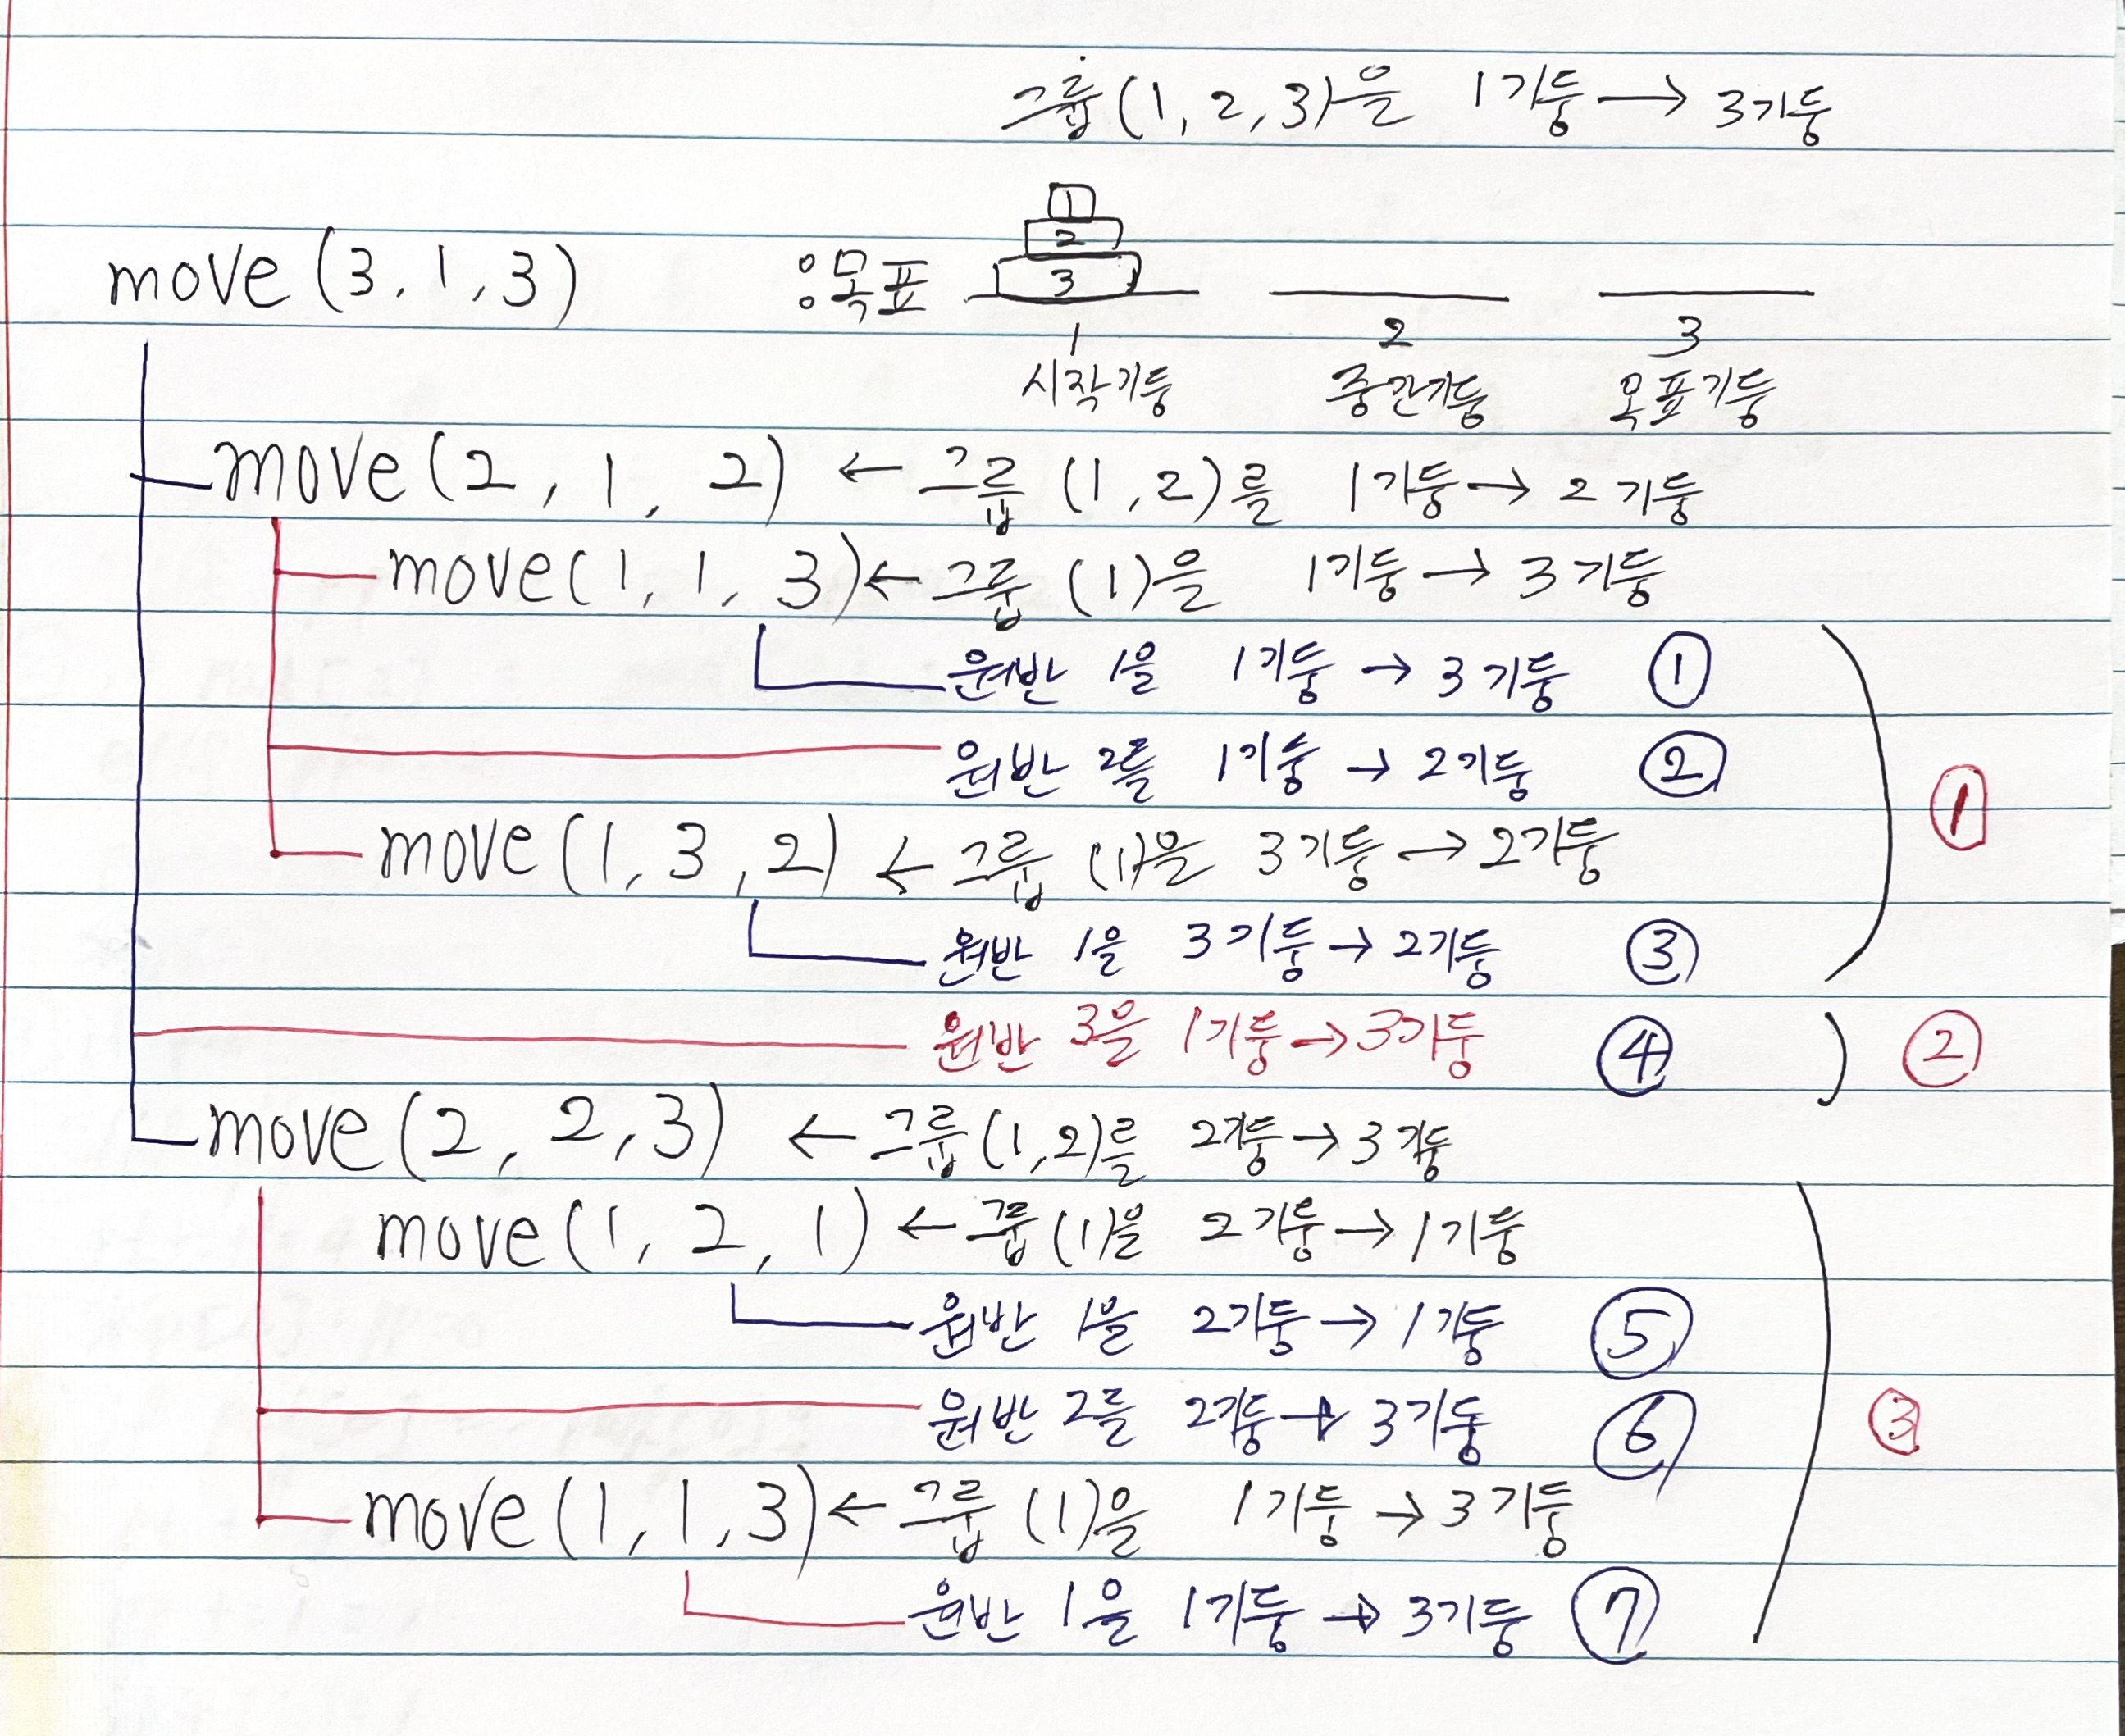 그룹(1, 2, 3)을 1기둥 → 3기둥
1
2
move (3, 1, 3) : 목표 3
1 2 3
시작기둥 중간기둥 목표기둥
move (2, 1, 2) ← 그룹 (1, 2)를 1기둥 → 2기둥
move (1, 1, 3) ← 그룹 (1)을 1기둥 → 3기둥
원반 1을 1기둥 → 3기둥 ①
원반 2를 1기둥 → 2기둥 ②
①
move (1, 3, 2) ← 그룹 (1)을 3기둥 → 2기둥
원반 1을 3기둥 → 2기둥 ③
원반 3을 1기둥 → 3기둥 ④ ②
move (2, 2, 3) ← 그룹(1, 2)를 2기둥 → 3기둥
move (1, 2, 1) ← 그룹 (1)을 2기둥 → 1기둥
원반 1을 2기둥 → 1기둥 ⑤
원반 2를 2기둥 → 3기둥 ⑥ ③
move (1, 1, 3) ← 그룹 (1)을 1기둥 → 3기둥
원반 1을 1기둥 → 3기둥 ⑦